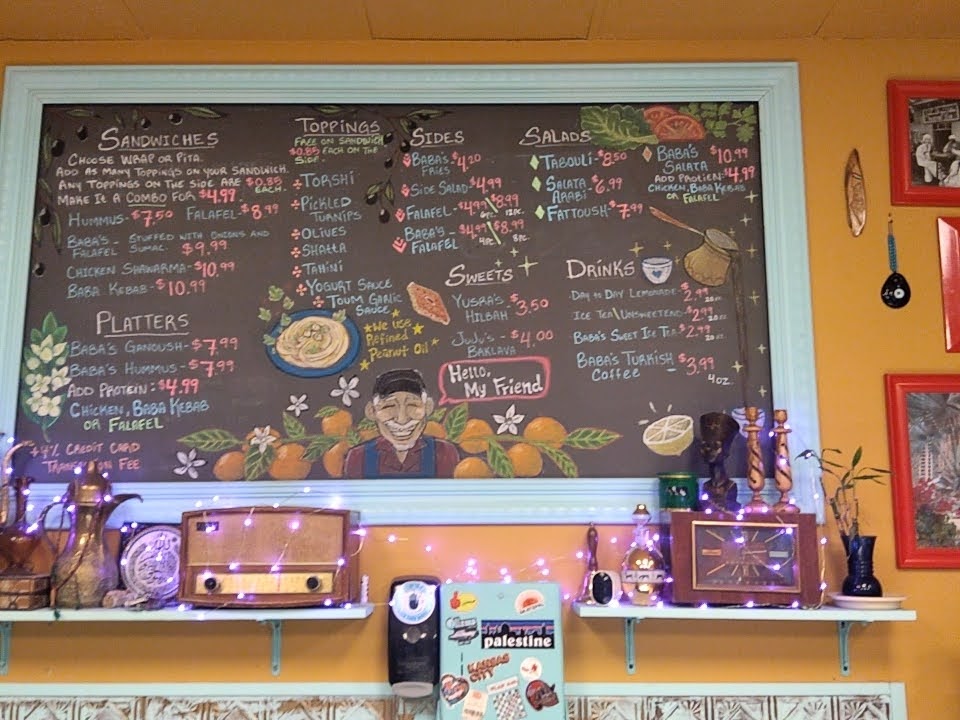 SANDWICHES
CHOOSE WRAP OR PITA.
ADD AS MANY TOPPINGS ON YOUR SANDWICH.
ANY TOPPINGS ON THE SIDE ARE $0.85 EACH.
MAKE IT A COMBO FOR $4.99.
HUMMUS - $7.50 FALAFEL - $8.99
BABA'S - STUFFED WITH ONIONS AND
FALAFEL SUMAC. $9.99
CHICKEN SHAWARMA - $10.99
BABA KEBAB - $10.99
PLATTERS
BABA'S GANOUSH - $7.99
BABA'S HUMMUS - $7.99
ADD PROTEIN: $4.99
CHICKEN, BABA KEBAB
OR FALAFEL
+4% CREDIT CARD
TRANSACTION FEE
TOPPINGS
FREE ON SANDWICH
$0.85 EACH ON THE
SIDE
TORSHI
PICKLED
TURNIPS
OLIVES
SHATTA
TAHINI
YOGURT SAUCE
TOUM GARLIC
SAUCE
WE USE
REFINED
PEANUT OIL
SIDES
BABA'S - $4.20
FRIES
SIDE SALAD $4.99
FALAFEL - $4.99 \ $8.99
6PC. 12PC.
BABA'S - $4.99 \ $8.99
FALAFEL 4PC. 8PC.
SWEETS
YUSRA'S - $3.50
HILBAH
JUJU'S - $4.00
BAKLAVA
Hello,
My Friend
SALADS
TABOULI - $8.50
SALATA - $6.99
ARABI
FATTOUSH - $7.99
BABA'S $10.99
SALATA
ADD PROTIEN: $4.99
CHICKEN, BABA KEBAB
OR FALAFEL
DRINKS
DAY TO DAY LEMONADE - $2.99
20oz.
ICE TEA \ UNSWEETEND - $2.99
20oz.
BABA'S SWEET ICE TEA - $2.99
20oz.
BABA'S TURKISH - $3.99
COFFEE 4oz.
palestine
KANSAS
CITY